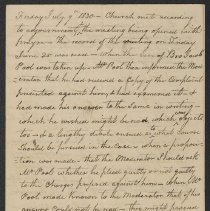 Friday July 9th 1830 - Church met according
to appointment, the meeting being opened with
Prayer - the record of the meeting on Friday
June 25 was read - When the case of Bro Jacob
Pool was taken up. Mr Pool then informed the Mode-
rator that he had received a Copy of the Complaint
preferred against him, & had answered it &
had made his answer to the same in writing -
which he wished might be read, which
too - a lengthy debate ensued to what course
should be pursued in the Case - when a propo-
sition was made - that the Moderator should ask
Mr Pool whether he plead guilty or not guilty
to the Charges prepared against him - When Mr
Pool made known to the Moderator that if his
answer could not be read - they might proceed